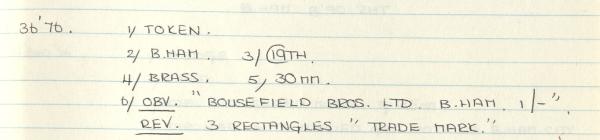 36'76. 1/ TOKEN.
2/ B.HAM. 3/ 19TH.
4/ BRASS. 5/ 30mm.
6/ OBV. "BOUSEFIELD BROS. LTD. B.HAM. 1/-".
REV. 3 RECTANGLES "TRADE MARK."